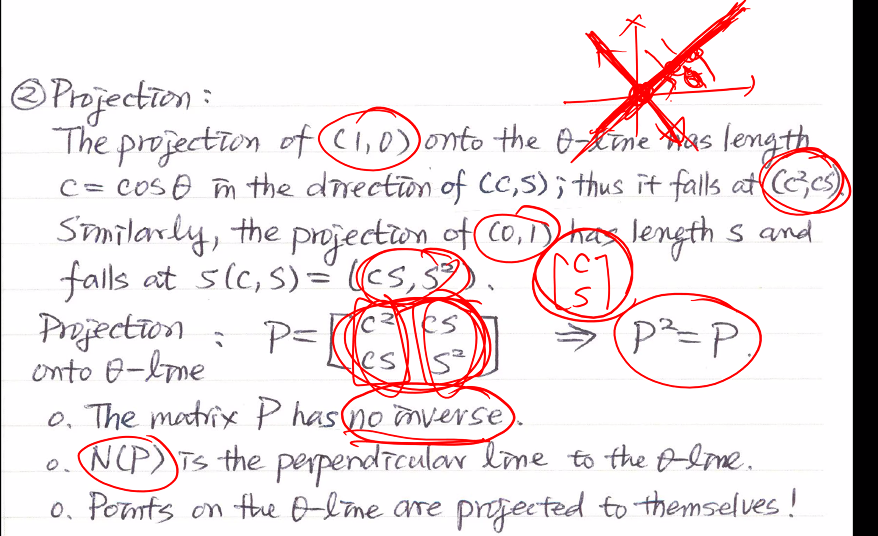 ② Projection :
The projection of (1,0) onto the θ-line has length
c = cos θ in the direction of (c,s); thus it falls at (c²,cs)
Similarly, the projection of (0,1) has length s and
falls at s(c,s) = (cs, s²).
[c
s]
Projection onto θ-line : P = [c² cs
cs s²] ⇒ P² = P.
o. The matrix P has no inverse.
o. N(P) is the perpendicular line to the θ-line.
o. Points on the θ-line are projected to themselves!